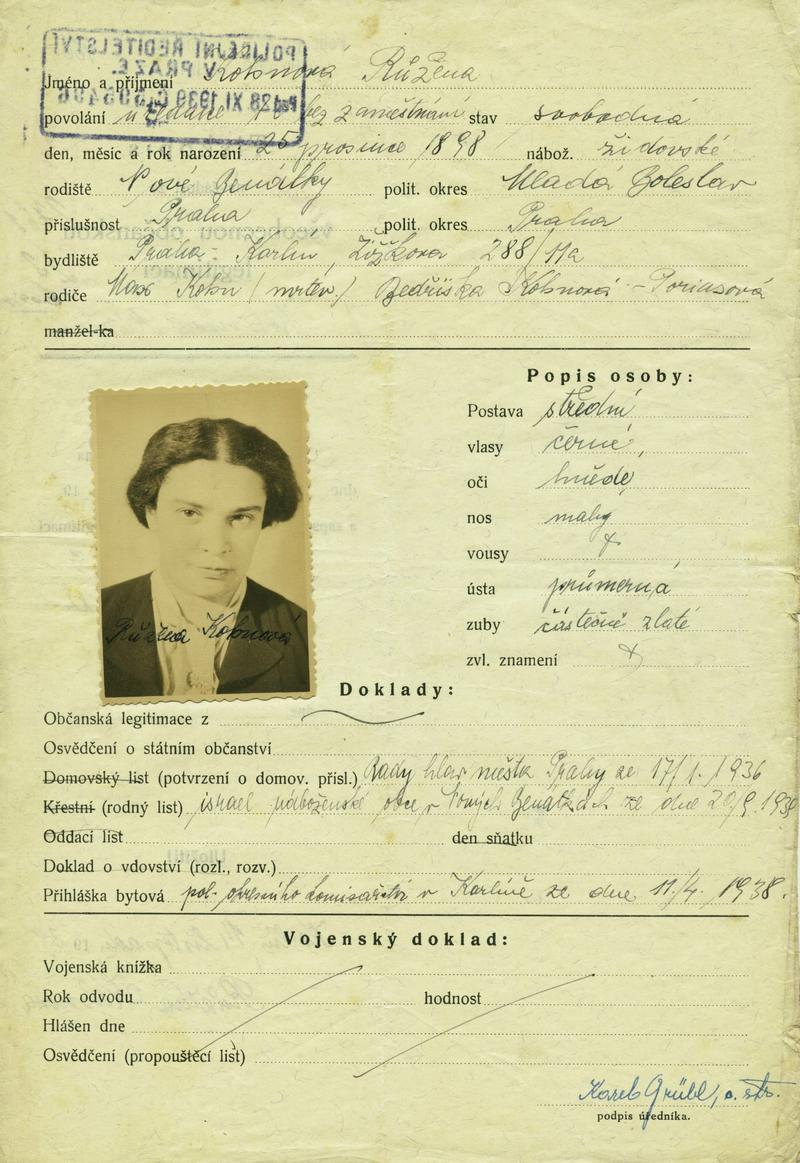 POLICEJNÍ ŘEDITELSTVÍ
V PRAZE
28 XI 1939
Jméno a příjmení Kohnová Růžena
povolání bez zaměstnání stav svobodná
den, měsíc a rok narození 25 prosince 1898 nábož. židovské
rodiště Nové Benátky polit. okres Mladá Boleslav
příslušnost Praha polit. okres Praha
bydliště Praha - Karlín, Žižkova 288/11a
rodiče Max Kohn (mrtev) Bedřiška Kohnová -
manžel-ka
Popis osoby:
Postava střední
vlasy černé,
oči hnědé,
nos malý
vousy
ústa průměrná
zuby částečně zlaté
zvl. znamení
Růžena Kohnová
Doklady:
Občanská legitimace z
Osvědčení o státním občanství
Domovský list (potvrzení o domov. přísl.) Rady hlav. města Prahy ze 17/1. 1936
Křestní (rodný list) israel náboženské obce v Nových Benátkách ze dne
Oddací list den sňatku
Doklad o vdovství (rozl., rozv.)
Přihláška bytová pol. okresního komisařství v Karlíně ze dne 11/4. 1938.
Vojenský doklad:
Vojenská knížka
Rok odvodu hodnost
Hlášen dne
Osvědčení (propouštěcí list)
Karel Grübl,
podpis úředníka.